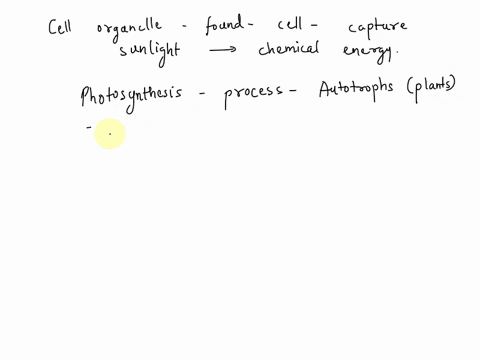 Cell organelle - found - cell - capture
sunlight → chemical energy.
Photosynthesis - process - Autotrophs (plants)
-